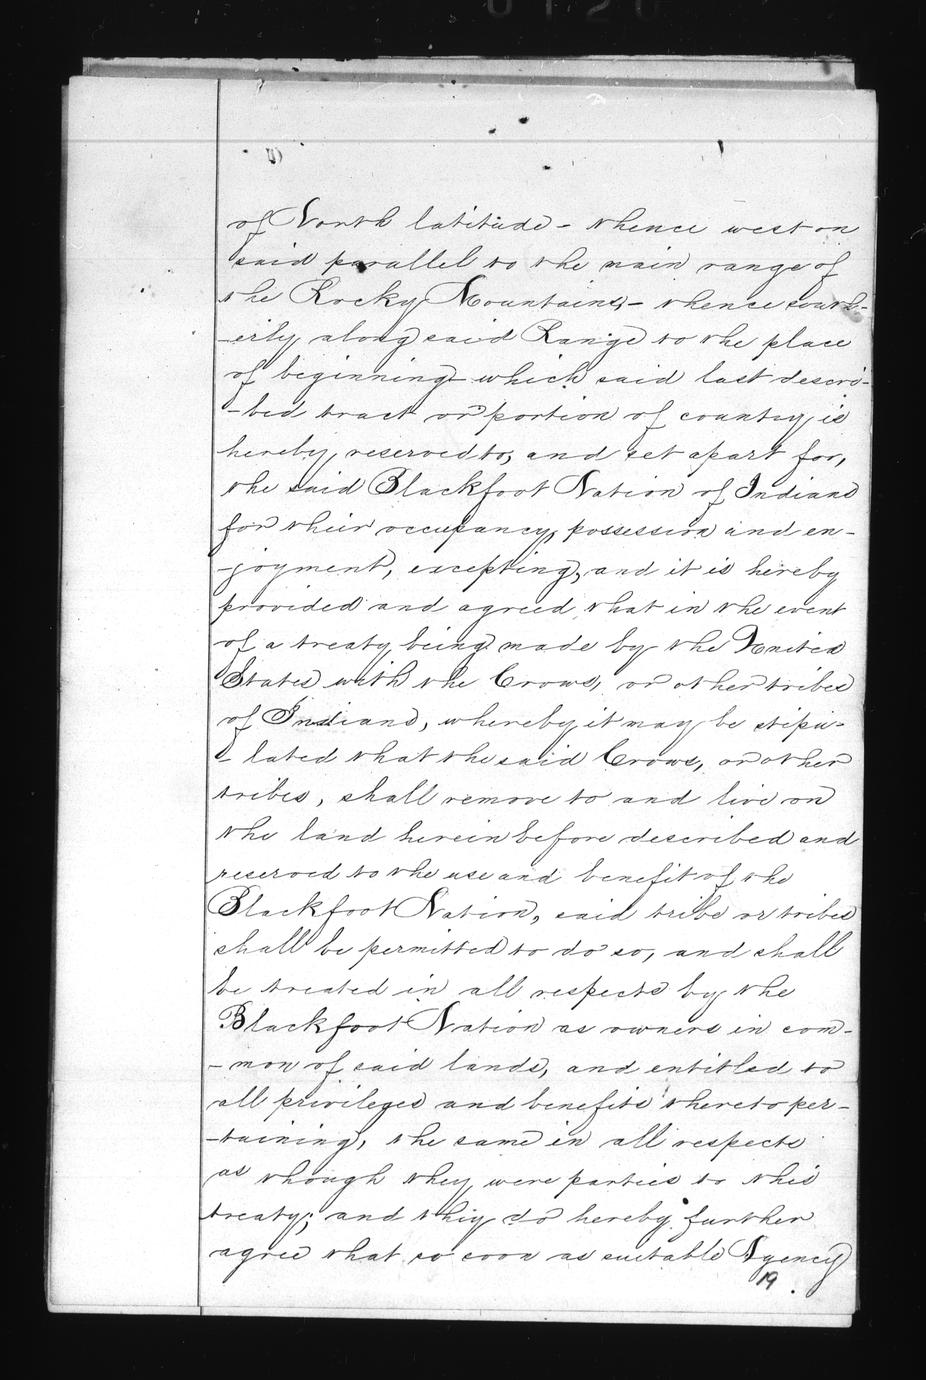 of North latitude - thence west on
said parallel to the main range of
the Rocky Mountains, - thence south-
-erly along said Range to the place
of beginning which said last descri-
-bed tract or portion of country is
hereby reserved to, and set apart for,
the said Blackfoot Nation of Indians
for their occupancy, possession and en-
-joyment, excepting, and it is hereby
provided and agreed that in the event
of a treaty being made by the United
States with the Crows, or other tribes
of Indians, whereby it may be stipu-
- lated that the said Crows, or other
tribes, shall remove to and live on
the land hereinbefore described and
reserved to the use and benefit of the
Blackfoot Nation, said tribe or tribes
shall be permitted to do so, and shall
be treated in all respects by the
Blackfoot Nation as owners in com-
- mon of said lands, and entitled to
all privileges and benefits thereto per-
-taining, the same in all respects
as though they were parties to this
treaty; and they do hereby further
agree that so soon as suitable Agency
19